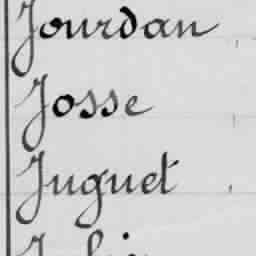 Jourdan
Josse
Juguet